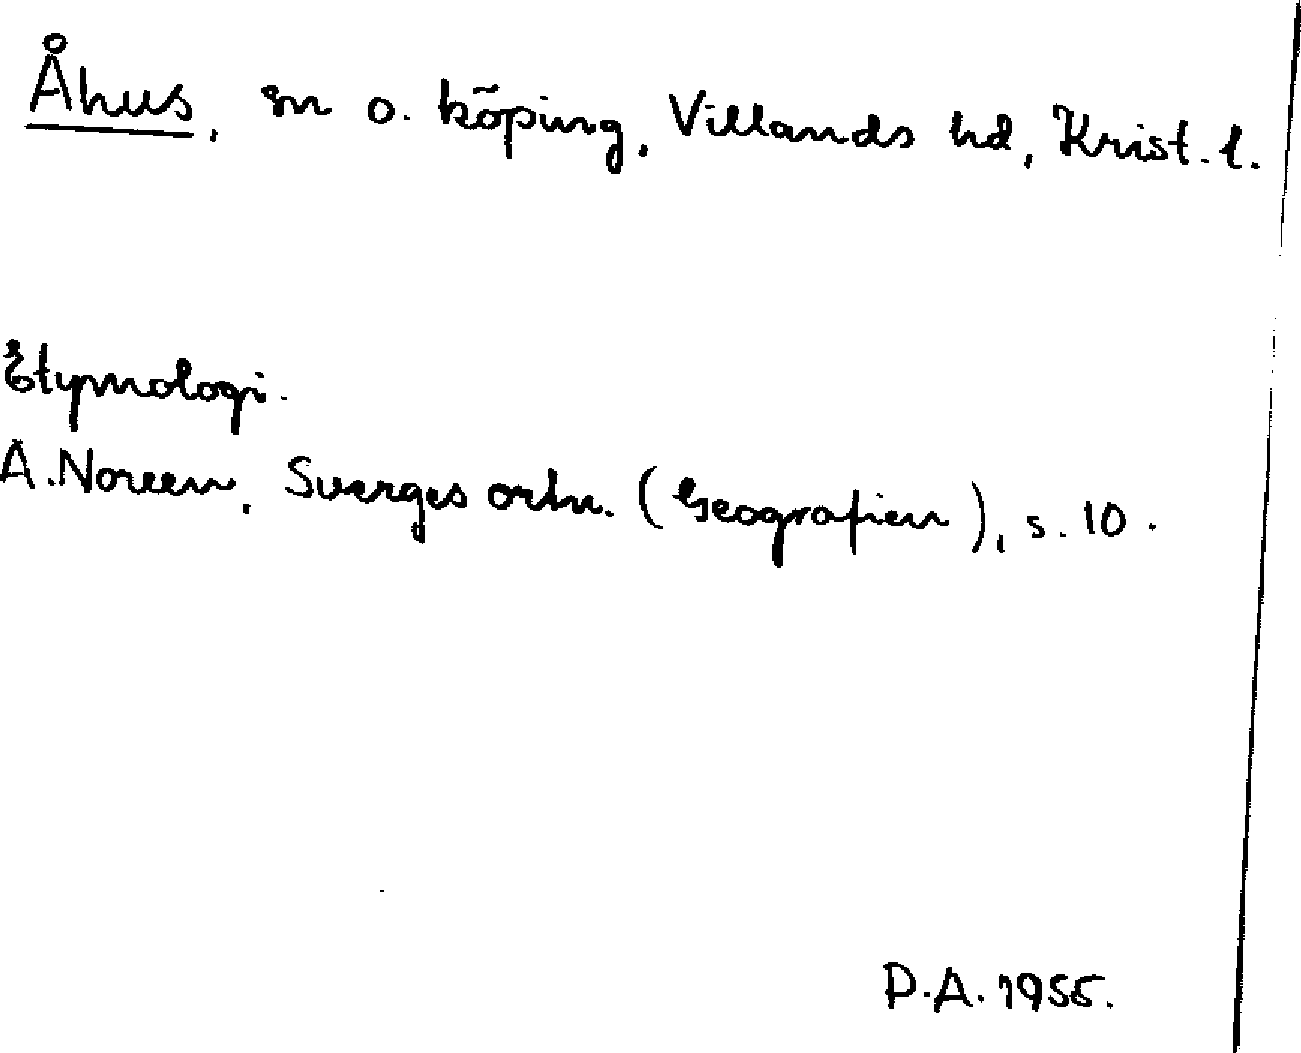 Åhus, sn o. köping, Villands hd, Krist. l.
Etymologi.
A. Noreen, Sverges ortn. (Geografien), s. 10.
P.A. 1955.